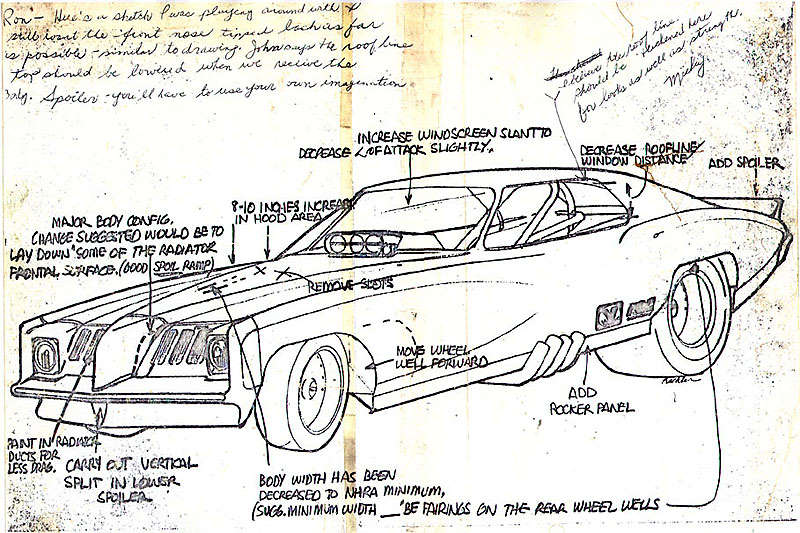 Ron - Here's a sketch I was playing around with &
still want the front nose tipped back as far
as possible - similar to drawing. John says the roof line
top should be lowered when we receive the
body. Spoiler - you'll have to use your own imagination.
believe the roof line
should be thickened here
for looks as well as strength.
Micky
INCREASE WINDSCREEN SLANT TO
DECREASE < OF ATTACK SLIGHTLY.
DECREASE ROOFLINE/
WINDOW DISTANCE
ADD SPOILER
8-10 INCHES INCREASE
IN HOOD AREA
MAJOR BODY CONFIG.
CHANGE SUGGESTED WOULD BE TO
"LAY DOWN" SOME OF THE RADIATOR
FRONTAL SURFACE. (GOOD SPOIL RAMP)
REMOVE SLOTS
MOVE WHEEL
WELL FORWARD
ADD
ROCKER PANEL
PAINT IN RADIATOR
DUCTS FOR
LESS DRAG.
CARRY OUT VERTICAL
SPLIT IN LOWER
SPOILER
BODY WIDTH HAS BEEN
DECREASED TO NHRA MINIMUM,
(SUGG. MINIMUM WIDTH __" BE FAIRINGS ON THE REAR WHEEL WELLS